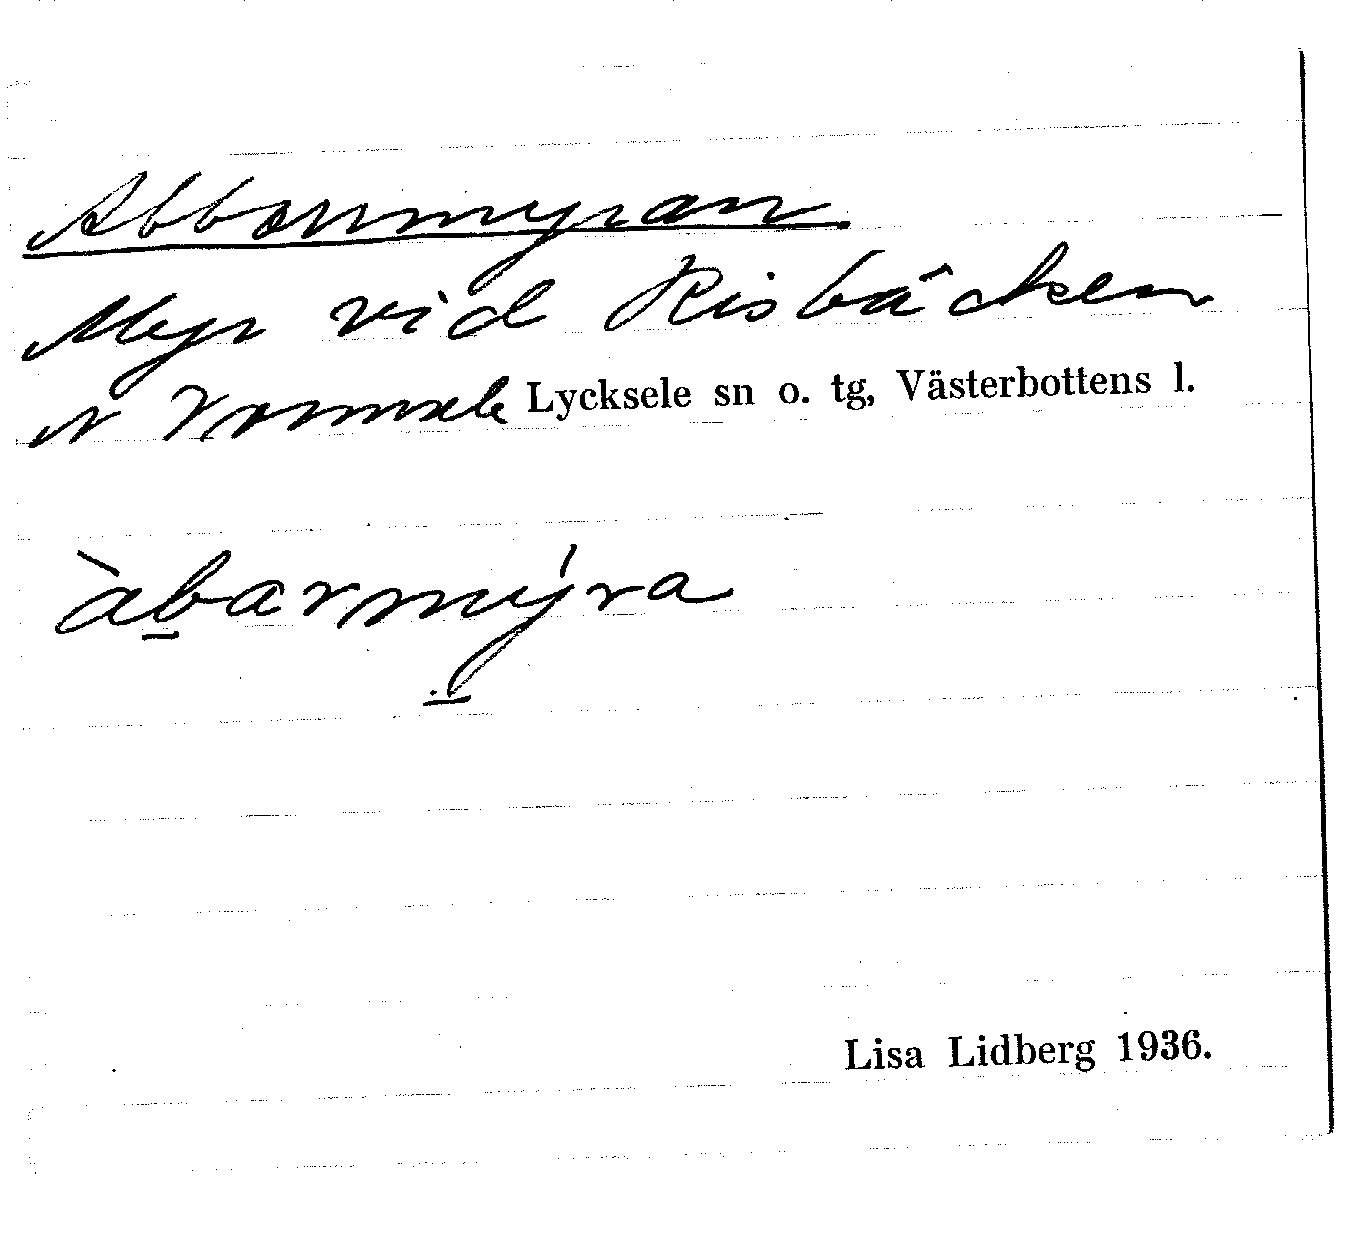 Abborrmyran
Myr vid Risbäcken
N Vormsele Lycksele sn o. tg, Västerbottens l.
àbarmýra
Lisa Lidberg 1936.